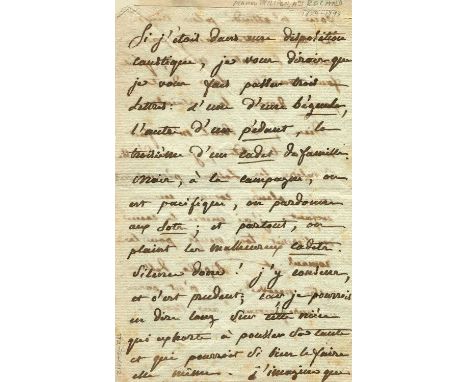 Si j'étais dans une disposition
caustique, je vous dirois que
je vous fais passer trois
lettres: l'une d'une bégueule,
l'autre d'un pédant, la
troisième d'un cadet de famille.
mais, à la campagne, on
est pacifique, on pardonne
aux sots; et partout, on
plaint les malheureux cadets
Silence donc! j'y consens,
et c'est prudent; car je pourrois
en dire long sur cette nièce
qui exhorte à pousser sa tante
et qui pourroit si bien le faire
elle même. j'imagine que